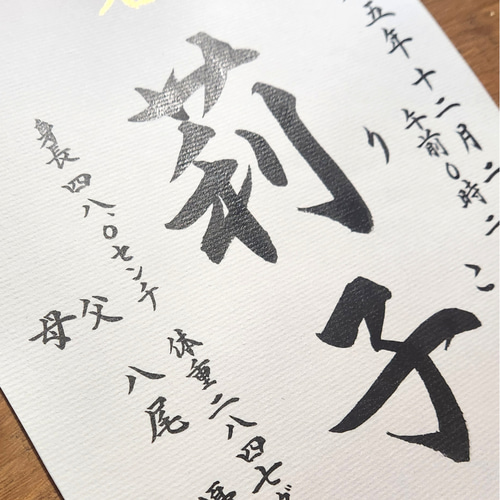 五年十二月二
午前0時二
りこ
莉子
身長四八.0センチ
体重二八四七グ
父
母
八尾